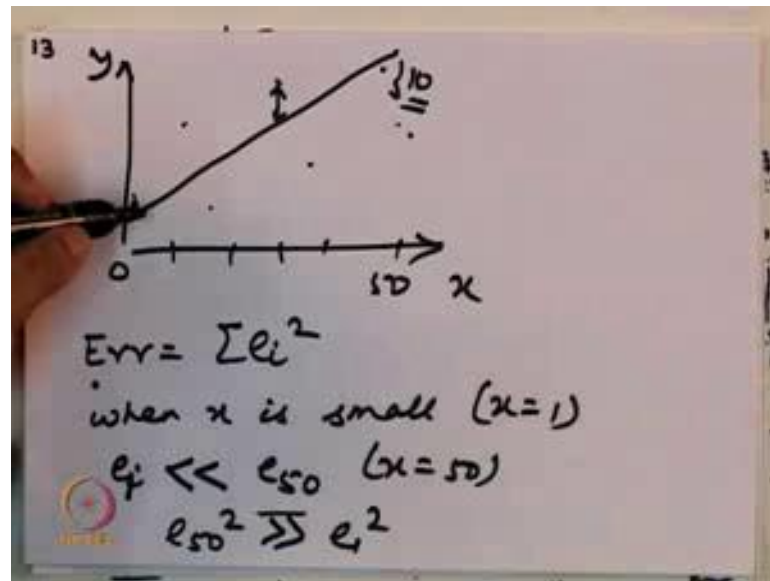 13
y
10
0 50 x
Err = Σei²
when x is small (x=1)
ei << e50 (x=50)
e50² >> e1²